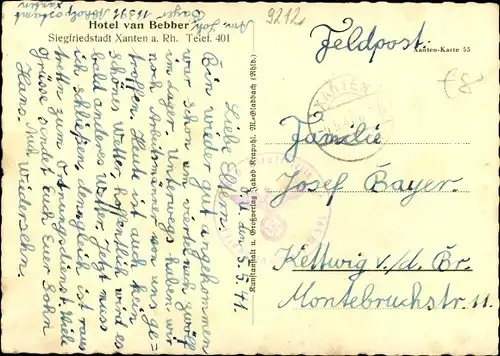 9212
Hotel van Bebber
Siegfriedstadt Xanten a. Rh. Telef. 401
Feldpost
Xanten-Karte 55
XANTEN
Kunstanstalt u. Großverlag Jakob Krapohl, M.-Gladbach (Rhld.)
den 5.5.41.
Liebe Eltern.
Bin wieder gut angekommen
war schon um viertel nach zwölf
im Lager. Unterwegs haben wir
noch Arbeitsmänner von uns ge-
troffen. Heute ist auch kein
schönes Wetter, hoffentlich wird es
bald anderes Wetter. Jetzt muss
ich schließen, denn ich
treten zum Ordnungsdienst. Viele
Grüsse sendet euch Euer Sohn
Hans. Auf Wiedersehn.
Bayer
Xanten
Familie
Josef Bayer.
Kettwig v./d. Br.
Montebruchstr. 11.